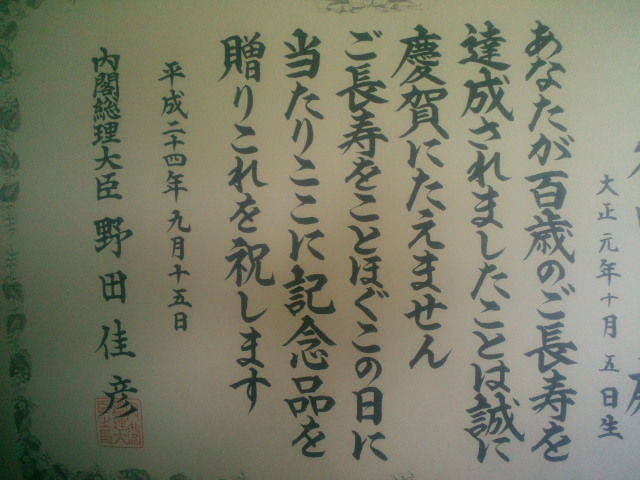 大正元年十月五日生
あなたが百歳のご長寿を
達成されましたことは誠に
慶賀にたえません
ご長寿をことほぐこの日に
当たりここに記念品を
贈りこれを祝します
平成二十四年九月十五日
内閣総理大臣 野田佳彦